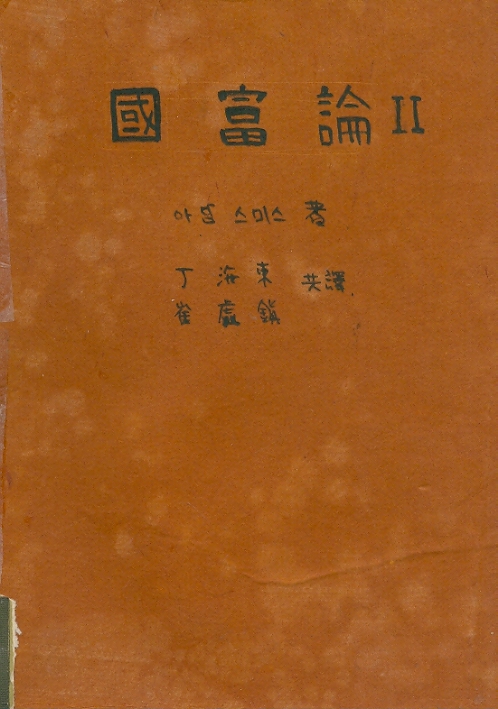 國富論 II
아담 스미스 著
丁海東 共譯
崔虛鎭